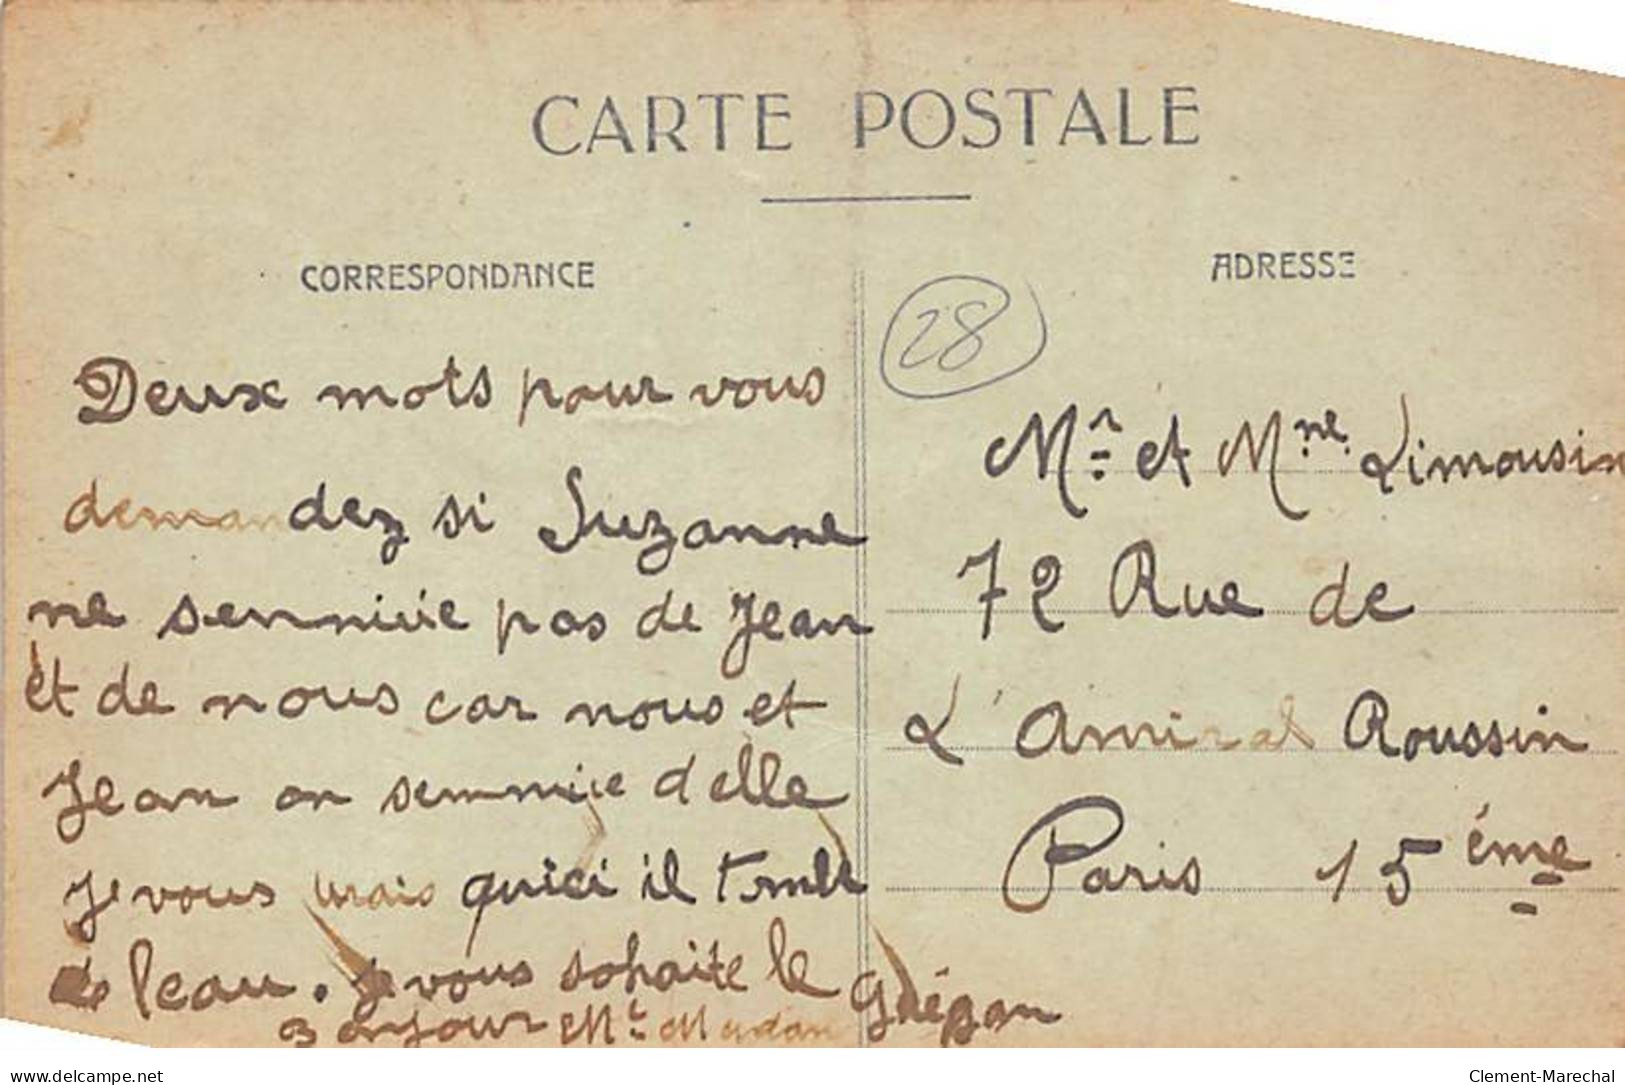 CARTE POSTALE
CORRESPONDANCE
Deux mots pour vous
demandez si Suzanne
ne sennuie pas de Jean
et de nous car nous et
Jean on sennuie d'elle
Je vous urais quici il tombe
de leau. Je vous sohaite le
Bonjour Mr Madan Guégan
ADRESSE
28
Mr et Mme Limousin
72 Rue de
L'Amiral Roussin
Paris 15ème
delcampe.net
Clement-Marechal